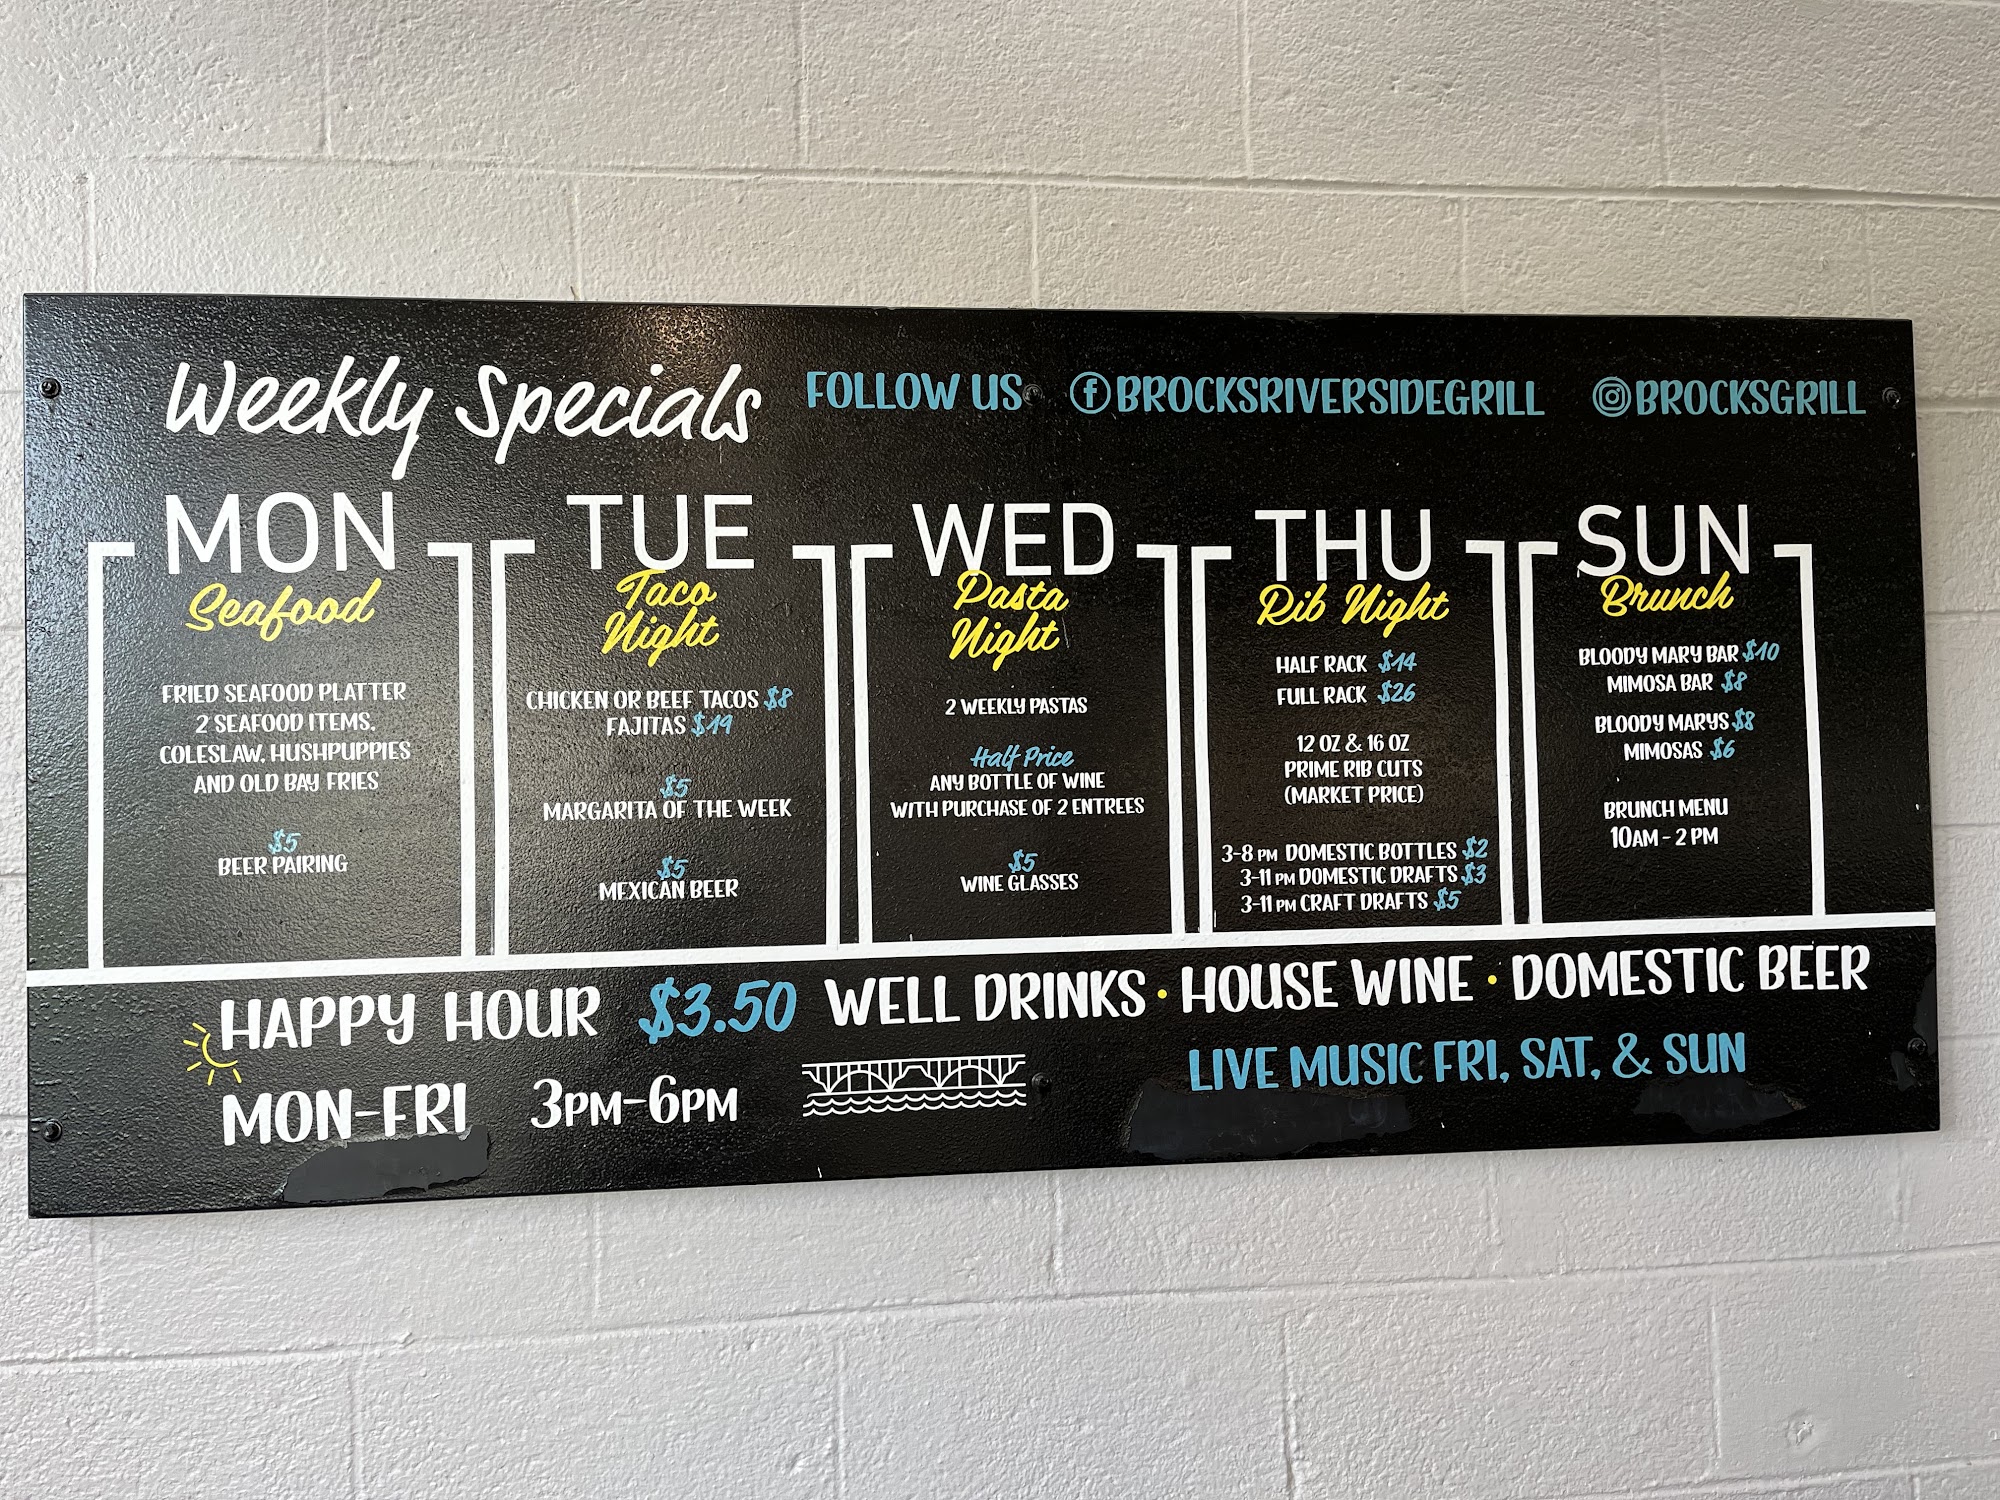 Weekly Specials
FOLLOW US BROCKSRIVERSIDEGRILL BROCKSGRILL
MON
Seafood
FRIED SEAFOOD PLATTER
2 SEAFOOD ITEMS,
COLESLAW, HUSHPUPPIES
AND OLD BAY FRIES
$5
BEER PAIRING
TUE
Taco
Night
CHICKEN OR BEEF TACOS $8
FAJITAS $19
$5
MARGARITA OF THE WEEK
$5
MEXICAN BEER
WED
Pasta
Night
2 WEEKLY PASTAS
Half Price
ANY BOTTLE OF WINE
WITH PURCHASE OF 2 ENTREES
$5
WINE GLASSES
THU
Rib Night
HALF RACK $14
FULL RACK $26
12 OZ & 16 OZ
PRIME RIB CUTS
(MARKET PRICE)
3-8 PM DOMESTIC BOTTLES $2
3-11 PM DOMESTIC DRAFTS $3
3-11 PM CRAFT DRAFTS $5
SUN
Brunch
BLOODY MARY BAR $10
MIMOSA BAR $8
BLOODY MARYS $8
MIMOSAS $6
BRUNCH MENU
10AM - 2 PM
HAPPY HOUR $3.50 WELL DRINKS · HOUSE WINE · DOMESTIC BEER
MON-FRI 3PM-6PM
LIVE MUSIC FRI, SAT, & SUN